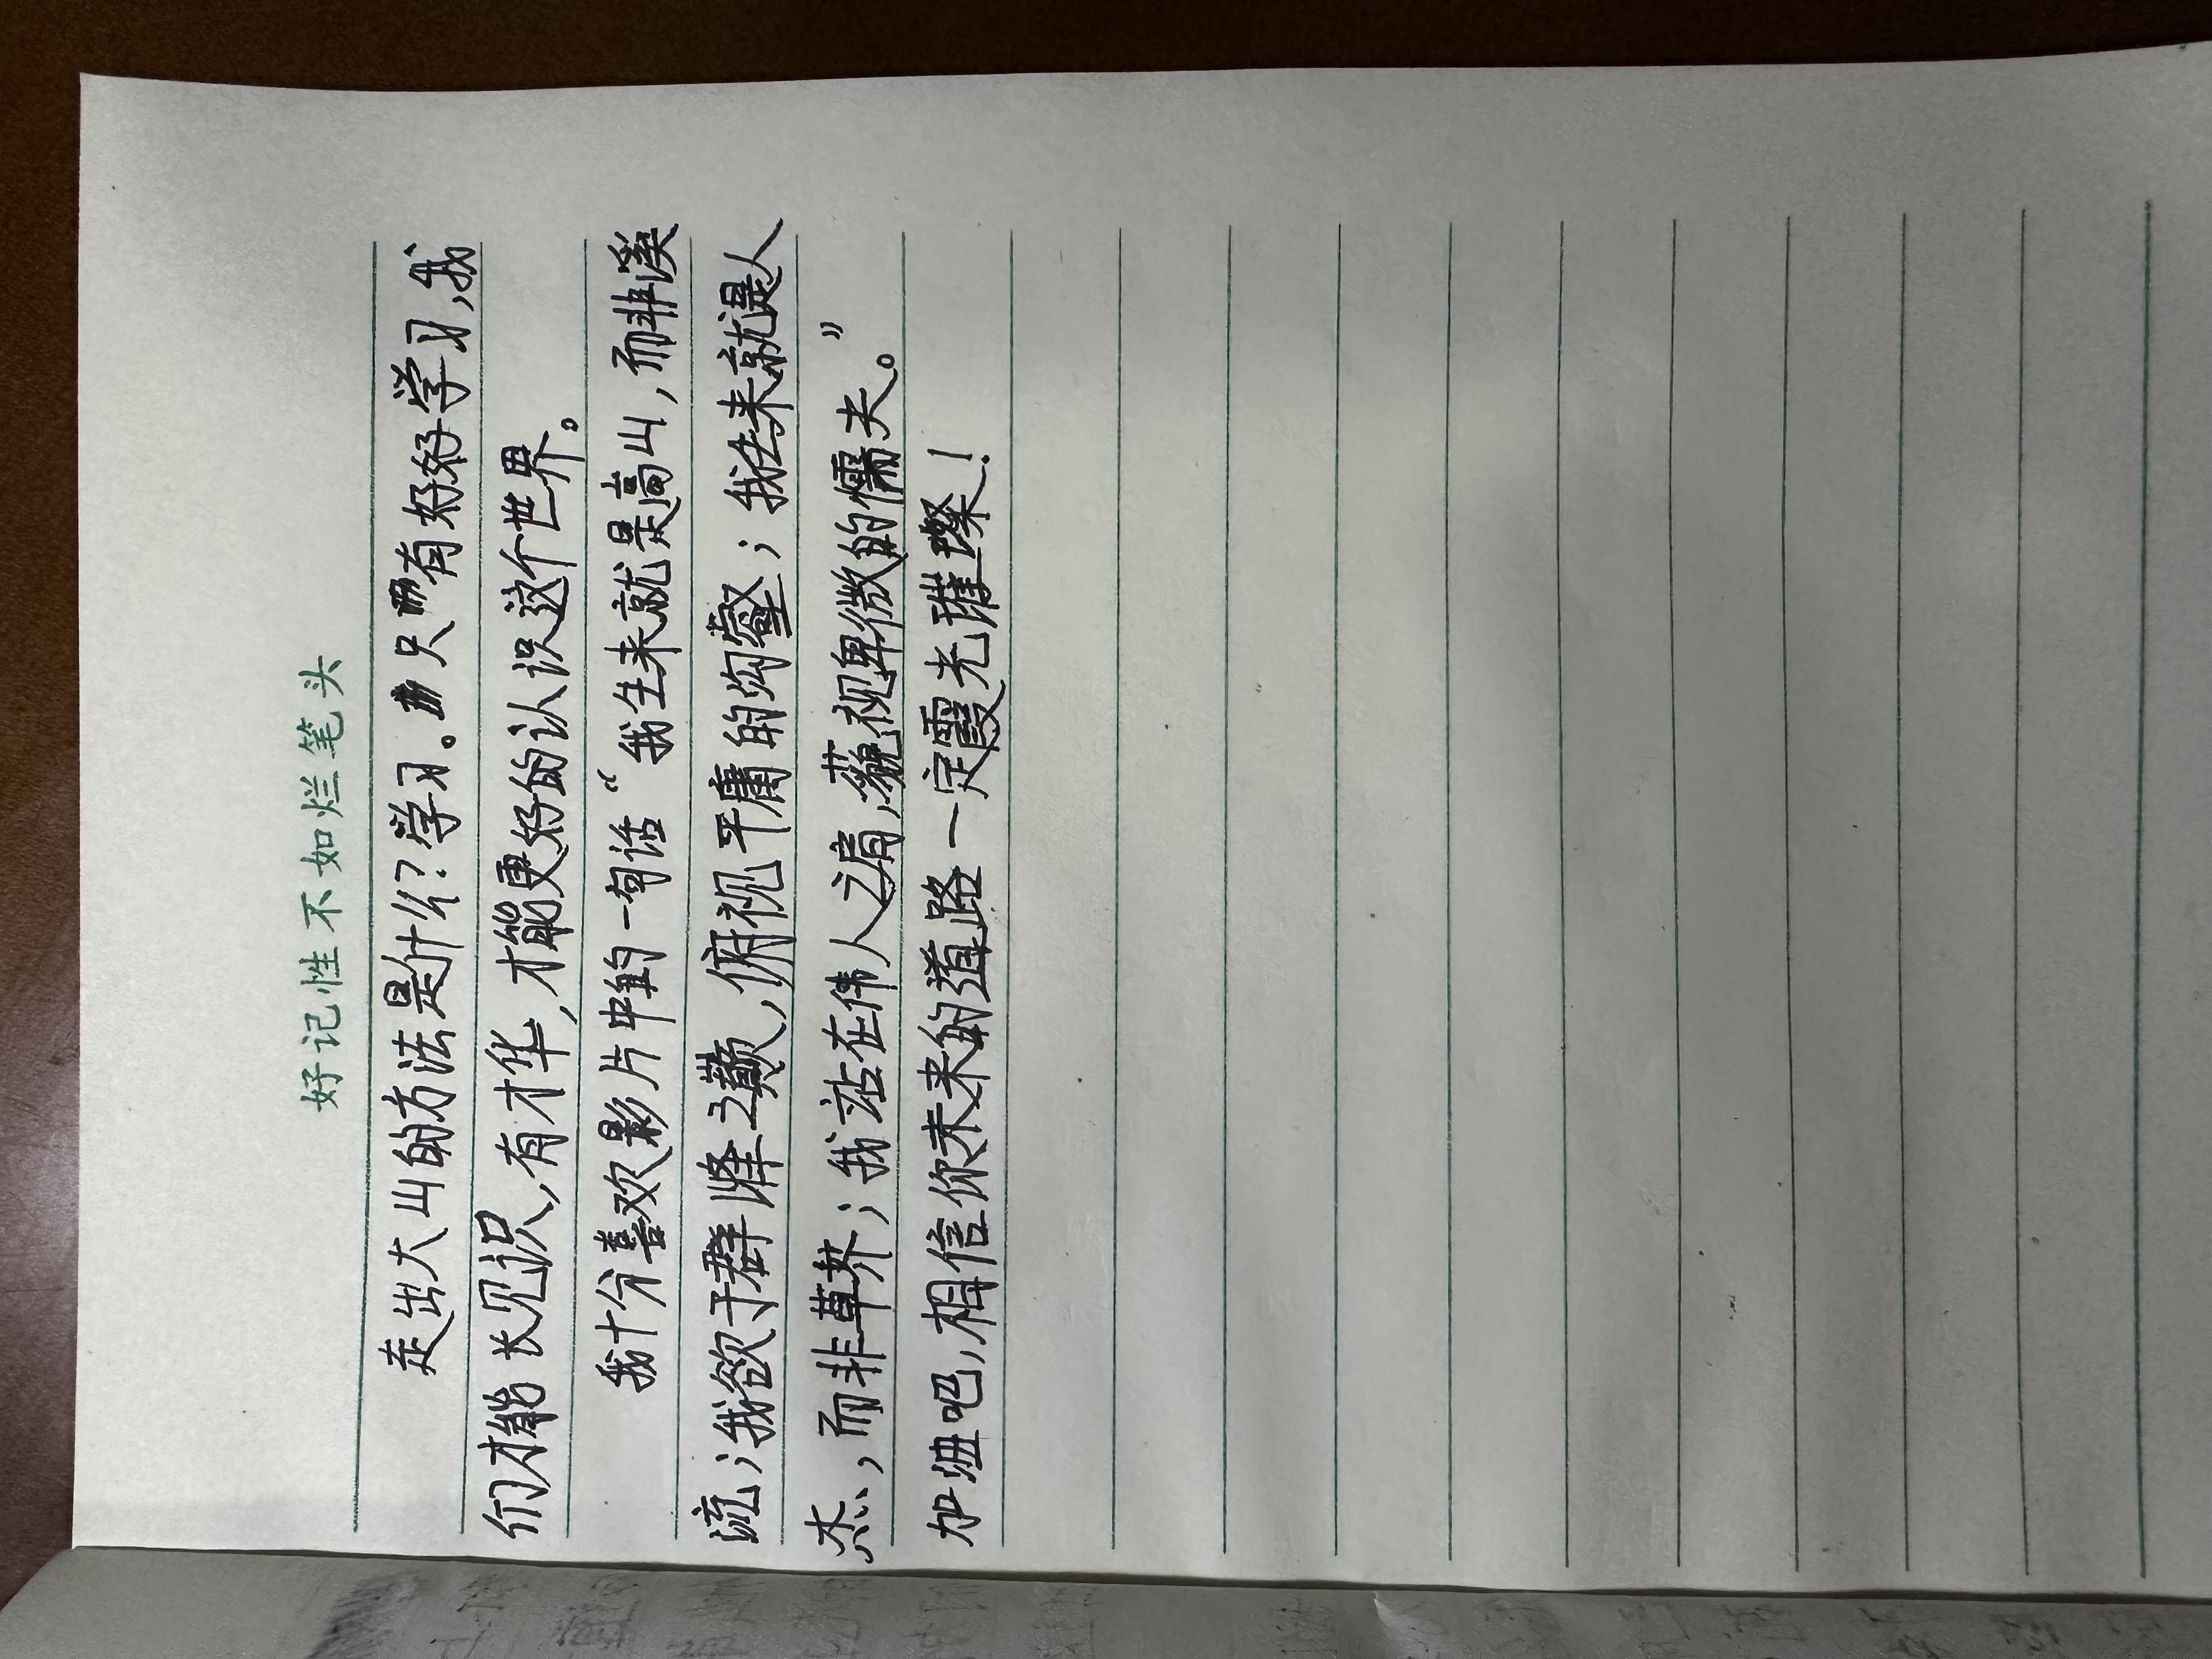 好记性不如烂笔头
走出大山的方法是什么？学习。只有好好学习，我
们才能长见识，有才华，才能更好的认识这个世界。
我十分喜欢影片中的一句话“我生来就是高山，而非溪
流；我欲于群峰之巅，俯视平庸的沟壑；我生来就是人
杰，而非草芥；我站在伟人之肩，藐视卑微的懦夫。”
加油吧，相信你未来的道路一定霞光璀璨！